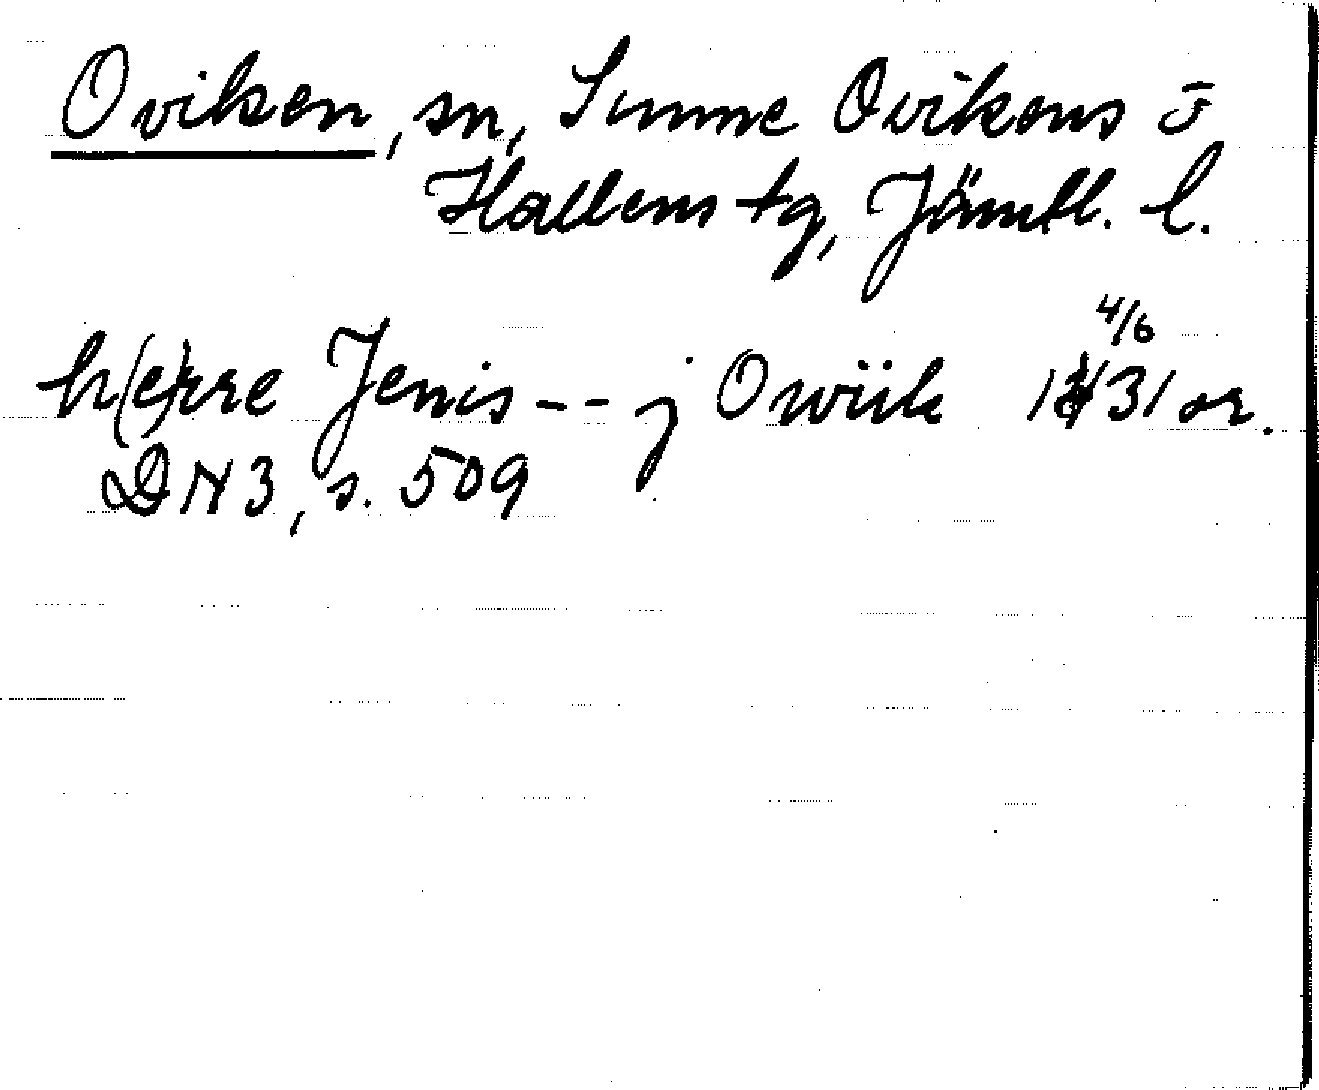 Oviken, sn, Sunne Ovikens o
Hallens tg, Jämtl. l.
h(e)rre Jenis -- j Owiik 1431 4/6 or.
DN 3, s. 509